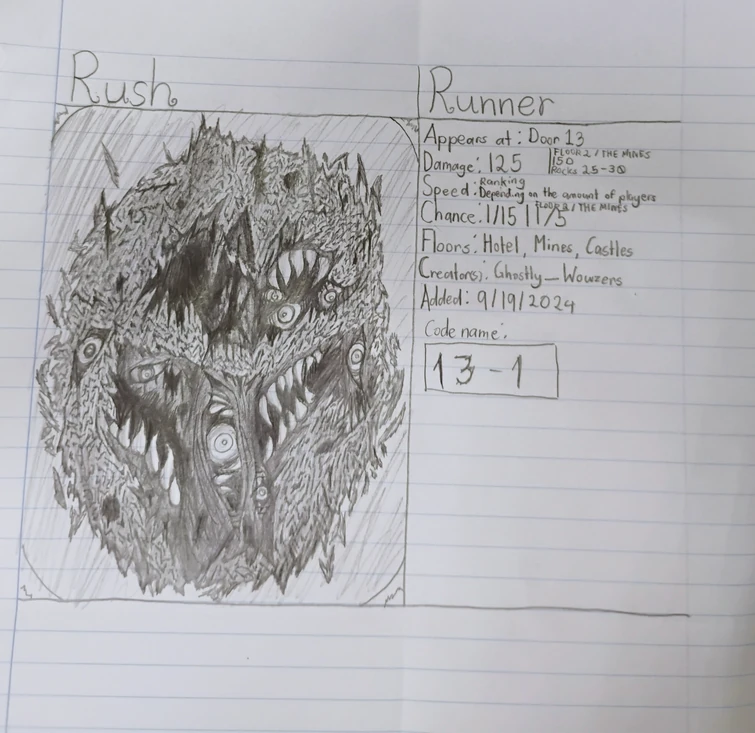 Rush
Runner
Appears at: Door 13
Damage: 125 | FLOOR 2 / THE MINES
150
Rocks 25-30
Speed: Ranking
Depending on the amount of players
Chance: 1/15 | 1/5 FLOOR 2 / THE MINES
Floors: Hotel, Mines, Castles
Creator(s): Ghostly_Wowzers
Added: 9/19/2024
Code name:
13-1